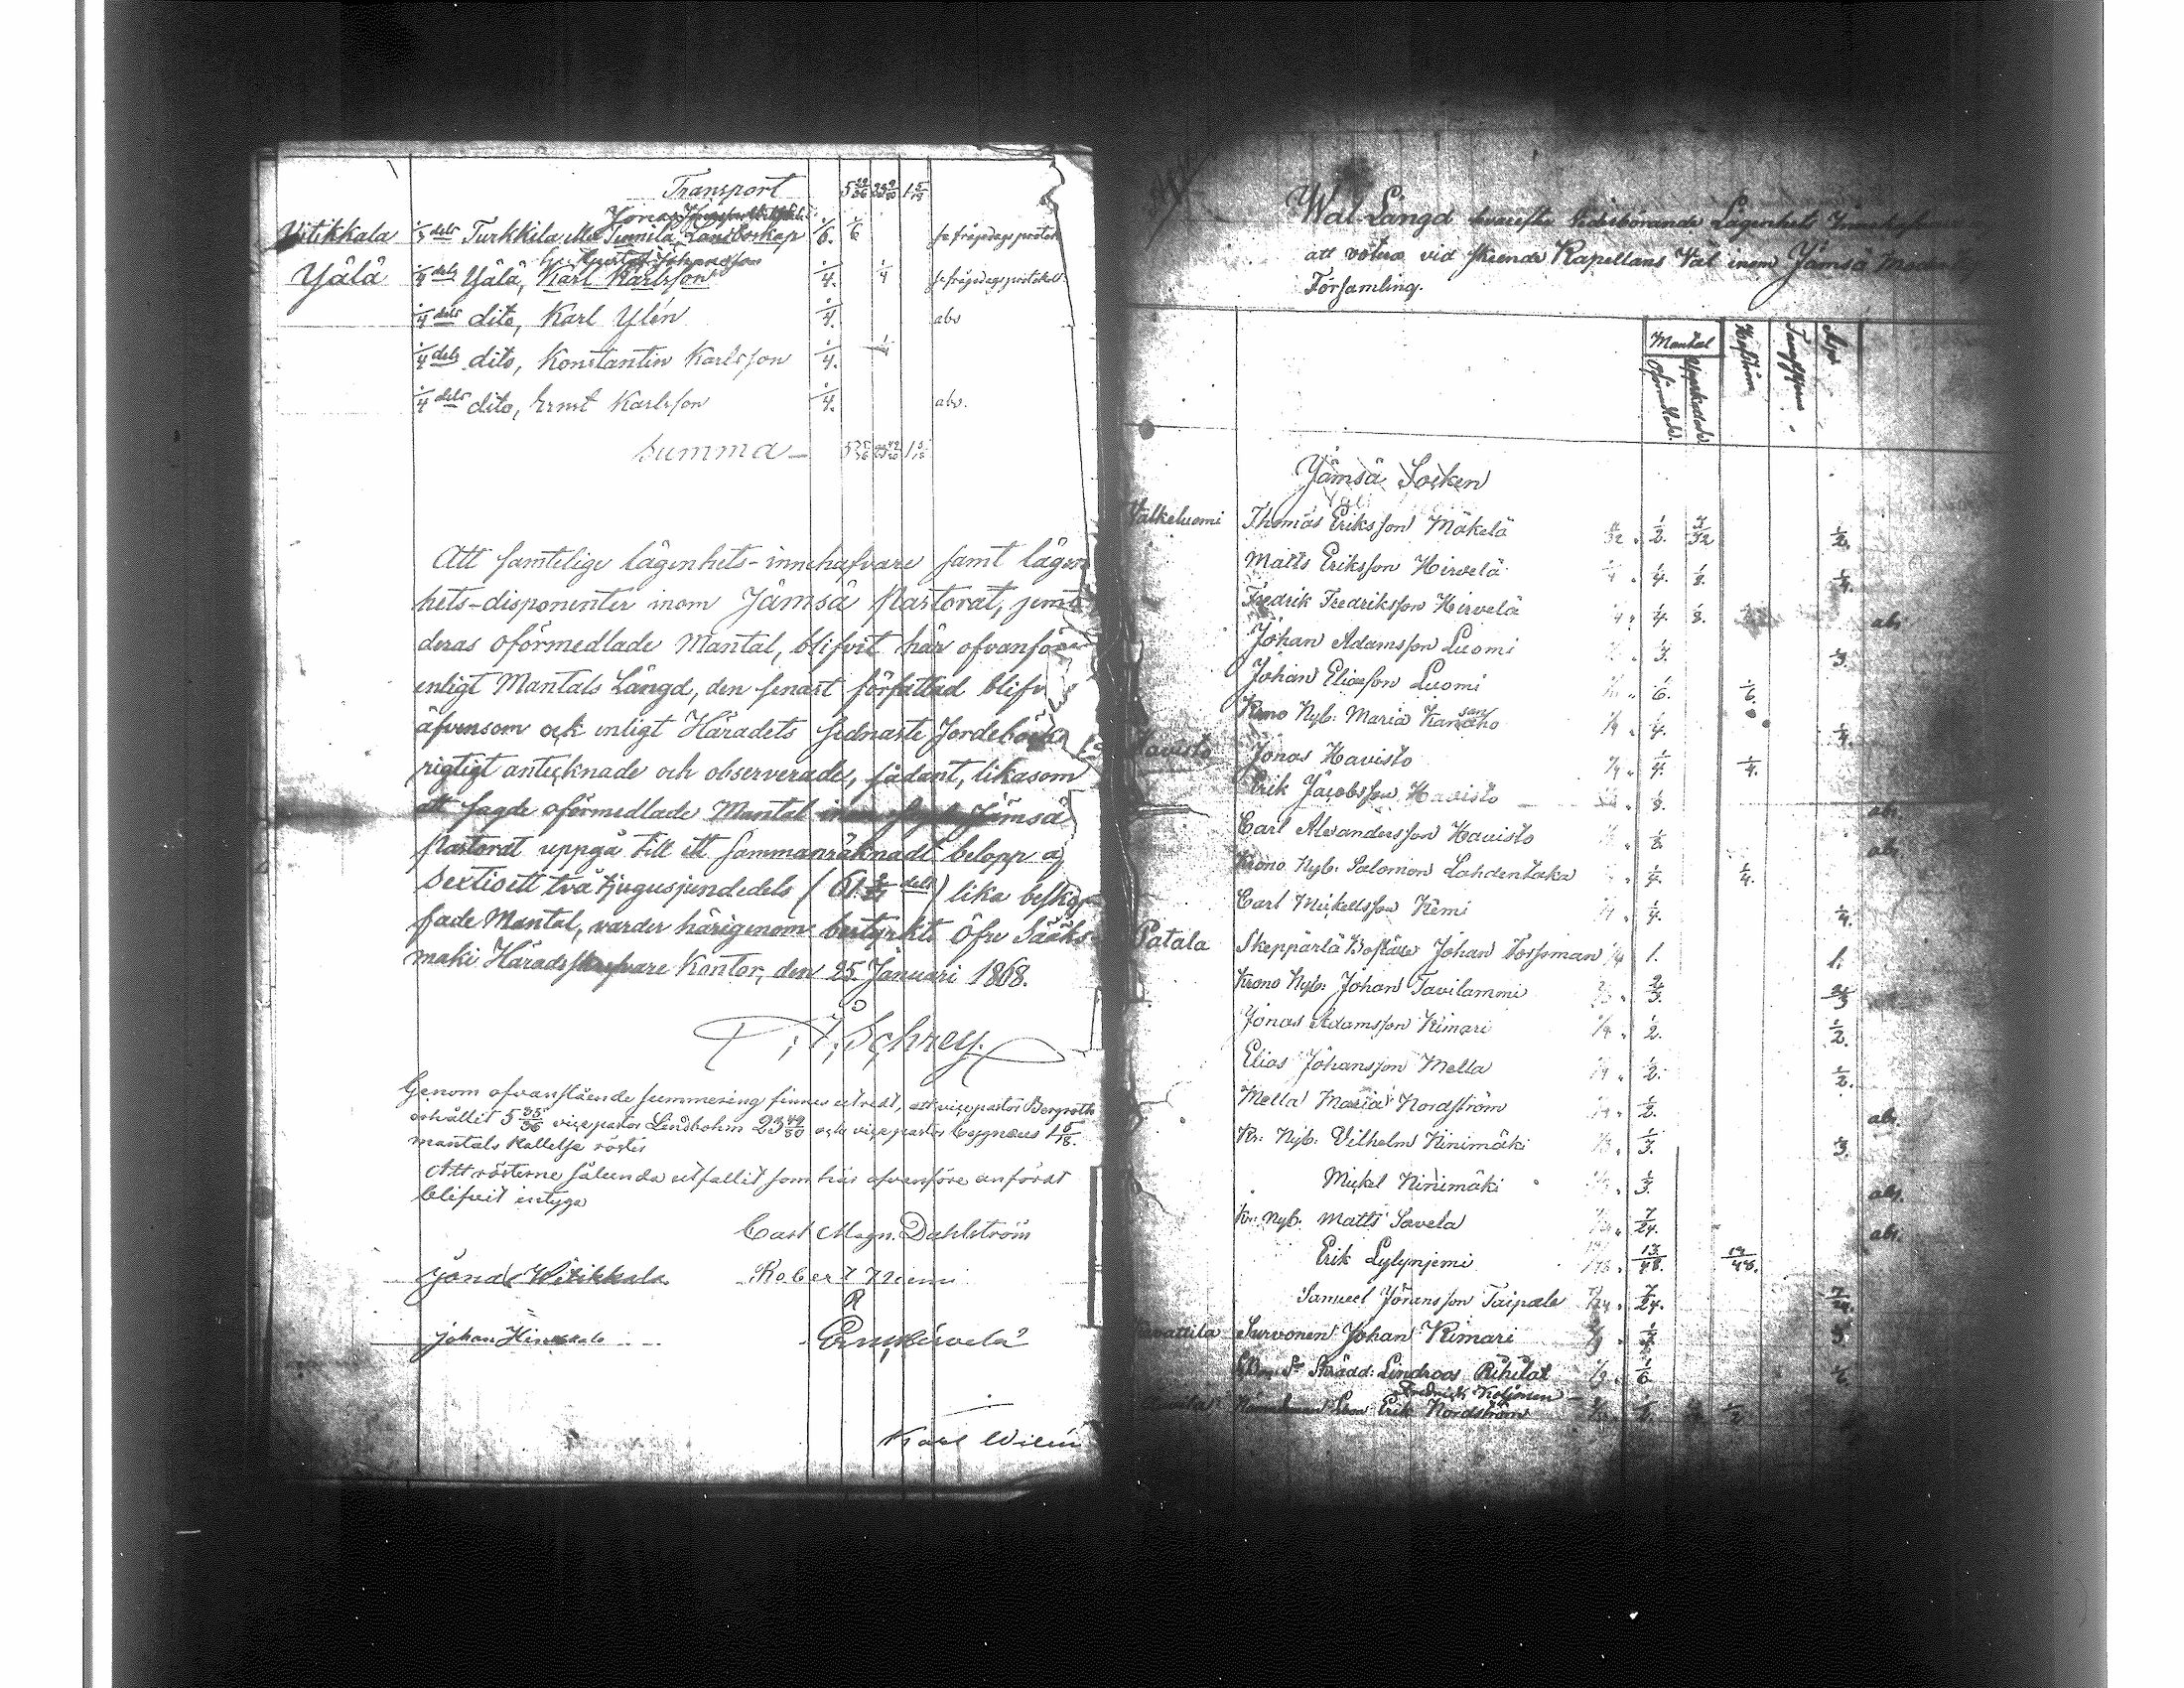 Transport 5 22/36 1 5/18
Vitikkala 1/3 dels Turkkila Tumila Landboskap 1/6. 1/6
Gustaf Johansson
Yälä 1/4 dels Yälä, Karl Karlsson 1/4. 1/4
1/4 dels dito, Karl Ylén 1/4. abs
1/4 dels dito, Konstantin Karlsson 1/4. 1/4
1/4 dels dito, Ernst Karlsson 1/4. abs.
Summa
Att samtelige lägenhets-innehafvare samt lägen
hets-disponenter inom Jämsä Pastorat, jemte
deras oförmedlade Mantal, blifvit här ofvanföre
enligt Mantals Längd, den senast författad blifv
äfvensom ock enligt Häradets sednaste Jordebok
rigtigt antecknade och observerade, sådant, likasom
att sagde oförmedlade Mantal Jämsä
Pastorat uppgå till ett sammanräknadt belopp af
Sextioett två tjugusjundedels (61. 2/27 dels) lika beskaf
fade Mantal, varder härigenom bestyrkt. Öfre Sääks
mäki Häradsskrifvare Kontor, den 25. Januari 1868.
Schrey.
Genom ofvanstående summering finnes utredt, att vice pastor Bergroth
erhållit 5 25/36 vice pastor Lindholm 23 och vice pastor Cygnæus 1 5/18.
mantals kallelse röster
Att rösterne sålunda utfallit som här ofvanföre anfördt
blifvit intyga
Carl Magn. Dahlström
Jonas Witikkala Robert Niemi
Johan
Karl Wilén
Wal-Längd hvarefter Lägenhets
att votera vid skeende Kapellans Val inom Jämsä Moder
Församling.
Mantal
Oförmedladt.
Jämsä Socken
Valkeluomi Thomas Eriksson Mäkelä 1/2. 7/32 1/2.
Matts Eriksson Hirvelä 1/4. 1/8. 1/4.
Fredrik Fredriksson Hirvelä 1/4. 1/8. abs
Johan Adamsson Luomi 1/3. 1/3.
Johan Eliasson Luomi 1/6. 1/6.
Krono Nyb. Maria 1/4. 1/4.
Havisto Jonas Havisto 1/4. 1/4.
Erik Jacobsson Havisto 1/8. abs.
Carl Alexandersson Havisto 1/8. abs.
Krono Nyb. Salomon Lahdentaka 1/4. 1/4.
Carl Mickelsson Kemi 1/4. 1/4.
Patala Skepparlä Boställe Johan Forssman 1. 1.
Krono Nyb. Johan Tavilammi 2/3. 2/3
Jonas Adamsson Kimari 1/2. 1/2.
Elias Johansson Mella 1/2. 1/2.
Mella Maria Nordström 1/2. abs.
Kr. Nyb. Vilhelm Hinimäki 1/3. 1/3.
Mickel Hinimäki 1/3. abs.
Kr. Nyb. Matts Savela 7/24. abs.
Erik Lylynjemi 13/48. 13/48.
Samuel Jöransson Taipale 7/24. 7/24.
Survonen Johan Kimari
Lindroos Rihilat 1/6 1/6.
Fredrick
Erik Nordström